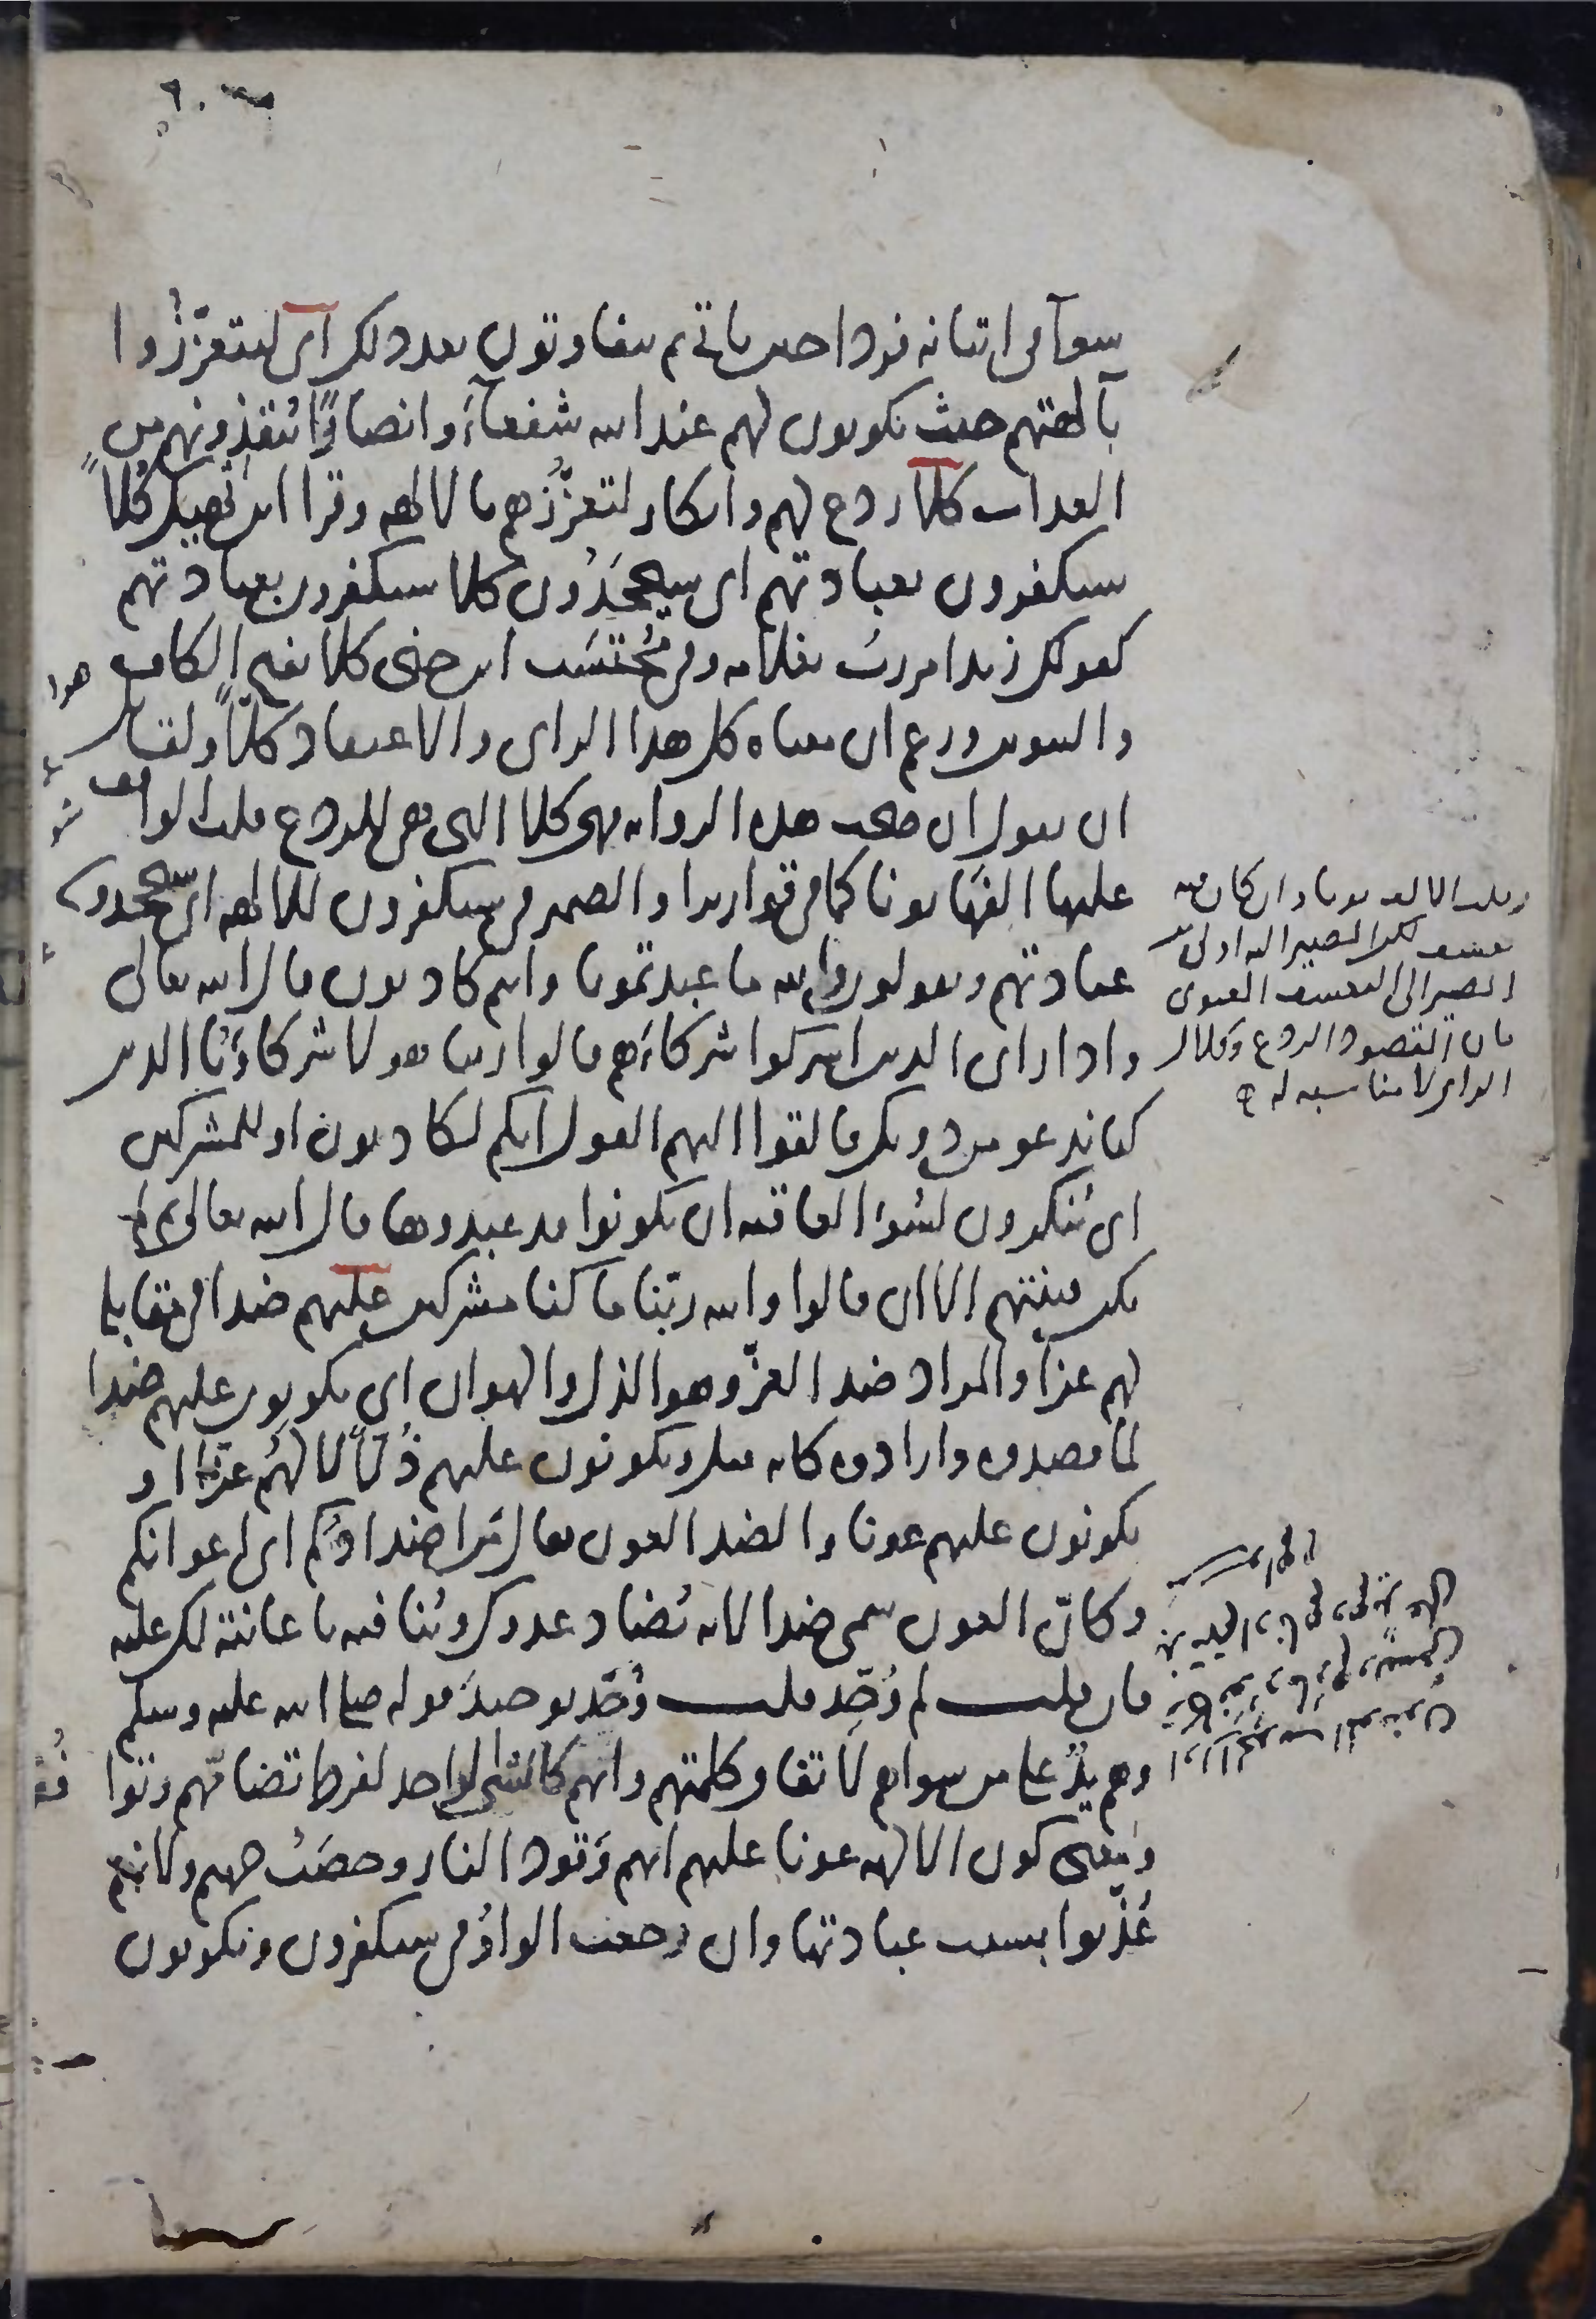 ٦٠
سوآ فى اتيانه فردا حين ياتى ثم يتفاوتون بعد ذلك اى ليتعزّزُوا
بآلهتهم حيث يكونون لهم عند الله شفعآءَ وانصارًا يُنقِذونهم من
العذاب كلا ردع لهم وانكار لتعزُّزهم بالالهه وقرا ابن نهيك كُلاًّ
سيكفرون بعبادتهم اى سيجحَدُون كلا سيكفرون بعبادتهم
كقولك زيدا مررتُ بغلامه وفى مُحْتَسَب ابن جنى كلا بفتح الكاف
والتنوين وزعم ان معناه كل هذا الراى والاعتقاد كَلاًّ ولقايل
ان يقول ان صحت هذه الروايه فهى كلا التى هى للردع قلب الواقف
عليها الفَها نونا كما فى قواريرا والضمير فى سيكفرون للالهه اى سيجحدون
عبادتهم ويقولون والله ما عبدتمونا وانتم كاذبون قال الله تعالى
واذا راى الذين اشركوا شركآءَهم قالوا ربنا هولا شركاؤُنا الذين
كنا ندعو من دونك فالقوا اليهم القول انكم لكاذبون او للمشركين
اى يُنكرون لسُوءِ العاقبه ان يكونوا قد عبدوها قال الله تعالى ثم لم
يكن فتنتهم الا ان قالوا والله ربّنا ما كنا مشركين عليهم ضدا فى مقابلة
لهم عزا والمراد ضد العزّ وهو الذل والهوان اى يكونون عليهم ضدا
لما قصدوه وارادوه كانه قيل ويكونون عليهم ذُلاًّ لا لهُم عزّا او
يكونون عليهم عونا والضد العون يقال مَن اضدادُكم اى اعوانكم
وكانّ العون سمى ضدا لانه يُضاد عدوك ويُنافيه باعانته لك عليه
فان قلت لم وُحِّد قلت وُحِّد توحيدَ قوله صلى الله عليه وسلم
وهم يدٌ على من سواهم لاتفاق كلمتهم وانهم كالشى الواحد لفرط تضامّهم وتوا
فقهم
ومعنى كون الالهه عونا عليهم انهم وَقود النار وحصَبُ جهنم ولانهم
عُذّبوا بسبب عبادتها وان رجعت الواوُ فى سيكفرون ويكونون
وقلب الالف نونا وان كان فيه
تعسف لكن المصير اليه اولى من
المصير الى التعسف المعنوى
فان المقصود الردع وكلال
الراى لا مناسبه له